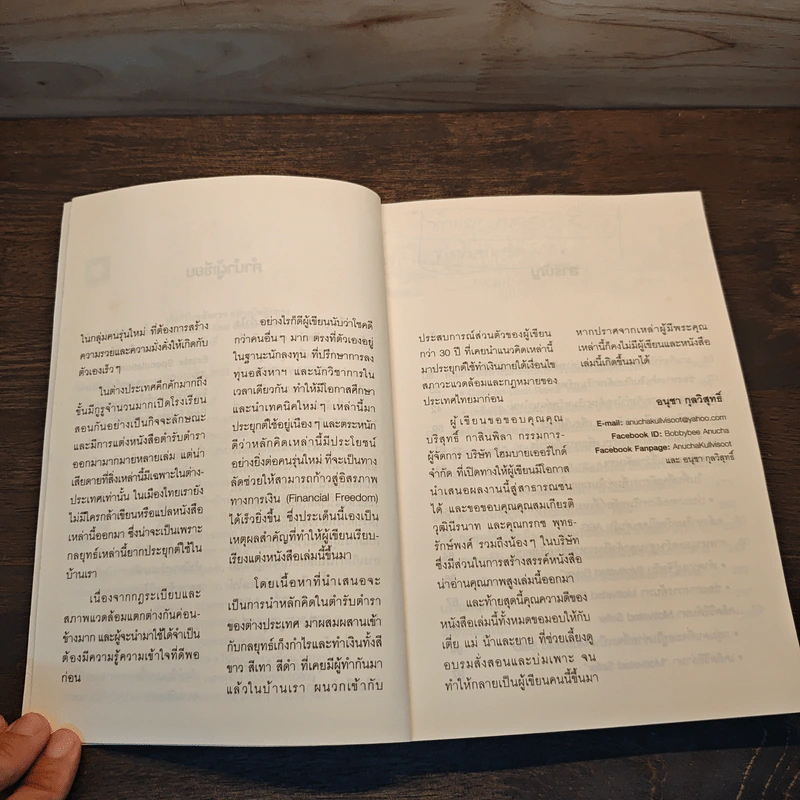 ในกลุ่มคนรุ่นใหม่ ที่ต้องการสร้าง
ความรวยและความมั่งคั่งให้เกิดกับ
ตัวเองเร็วๆ
ในต่างประเทศคึกคักมากถึง
ขั้นมีกูรูจำนวนมากเปิดโรงเรียน
สอนกันอย่างเป็นกิจจะลักษณะ
และมีการแต่งหนังสือตำรับตำรา
ออกมามากมายหลายเล่ม แต่น่า
เสียดายที่สิ่งเหล่านี้มีเฉพาะในต่าง-
ประเทศเท่านั้น ในเมืองไทยเรายัง
ไม่มีใครกล้าเขียนหรือแปลหนังสือ
เหล่านี้ออกมา ซึ่งน่าจะเป็นเพราะ
กลยุทธ์เหล่านี้ยากประยุกต์ใช้ใน
บ้านเรา
เนื่องจากกฎระเบียบและ
สภาพแวดล้อมแตกต่างกันค่อน-
ข้างมาก และผู้จะนำมาใช้ได้จำเป็น
ต้องมีความรู้ความเข้าใจที่ดีพอ
ก่อน
อย่างไรก็ดีผู้เขียนนับว่าโชคดี
กว่าคนอื่นๆ มาก ตรงที่ตัวเองอยู่
ในฐานะนักลงทุน ที่ปรึกษาการลง
ทุนอสังหาฯ และนักวิชาการใน
เวลาเดียวกัน ทำให้มีโอกาสศึกษา
และนำเทคนิคใหม่ๆ เหล่านี้มา
ประยุกต์ใช้อยู่เนืองๆ และตระหนัก
ดีว่าหลักคิดเหล่านี้มีประโยชน์
อย่างยิ่งต่อคนรุ่นใหม่ ที่จะเป็นทาง
ลัดช่วยให้สามารถก้าวสู่อิสรภาพ
ทางการเงิน (Financial Freedom)
ได้เร็วยิ่งขึ้น ซึ่งประเด็นนี้เองเป็น
เหตุผลสำคัญที่ทำให้ผู้เขียนเรียบ-
เรียงแต่งหนังสือเล่มนี้ขึ้นมา
โดยเนื้อหาที่นำเสนอจะ
เป็นการนำหลักคิดในตำรับตำรา
ของต่างประเทศ มาผสมผสานเข้า
กับกลยุทธ์เก็งกำไรและทำเงินทั้งสี
ขาว สีเทา สีดำ ที่เคยมีผู้ทำกันมา
แล้วในบ้านเรา ผนวกเข้ากับ
ประสบการณ์ส่วนตัวของผู้เขียน
กว่า 30 ปี ที่เคยนำแนวคิดเหล่านี้
มาประยุกต์ใช้ทำเงินภายใต้เงื่อนไข
สภาวะแวดล้อมและกฎหมายของ
ประเทศไทยมาก่อน
ผู้เขียนขอขอบคุณคุณ
บริสุทธิ์ กาสินพิลา กรรมการ-
ผู้จัดการ บริษัท โฮมบายเออร์ไกด์
จำกัด ที่เปิดทางให้ผู้เขียนมีโอกาส
นำเสนอผลงานนี้สู่สาธารณชน
ได้ และขอขอบคุณคุณสมเกียรติ
วุฒินีรนาท และคุณกรกช พุทธ-
รักษ์พงค์ รวมถึงน้องๆ ในบริษัท
ซึ่งมีส่วนในการสร้างสรรค์หนังสือ
น่าอ่านคุณภาพสูงเล่มนี้ออกมา
และท้ายสุดนี้คุณความดีของ
หนังสือเล่มนี้ทั้งหมดขอมอบให้กับ
เตี่ย แม่ น้าและยาย ที่ช่วยเลี้ยงดู
อบรมสั่งสอนและบ่มเพาะ จน
ทำให้กลายเป็นผู้เขียนคนนี้ขึ้นมา
หากปราศจากเหล่าผู้มีพระคุณ
เหล่านี้ก็คงไม่มีผู้เขียนและหนังสือ
เล่มนี้เกิดขึ้นมาได้
อนุชา กุลวิสุทธิ์
E-mail: anuchakullvisoot@yahoo.com
Facebook ID: Bobbybee Anucha
Facebook Fanpage: AnuchaKullvisoot
และ อนุชา กุลวิสุทธิ์